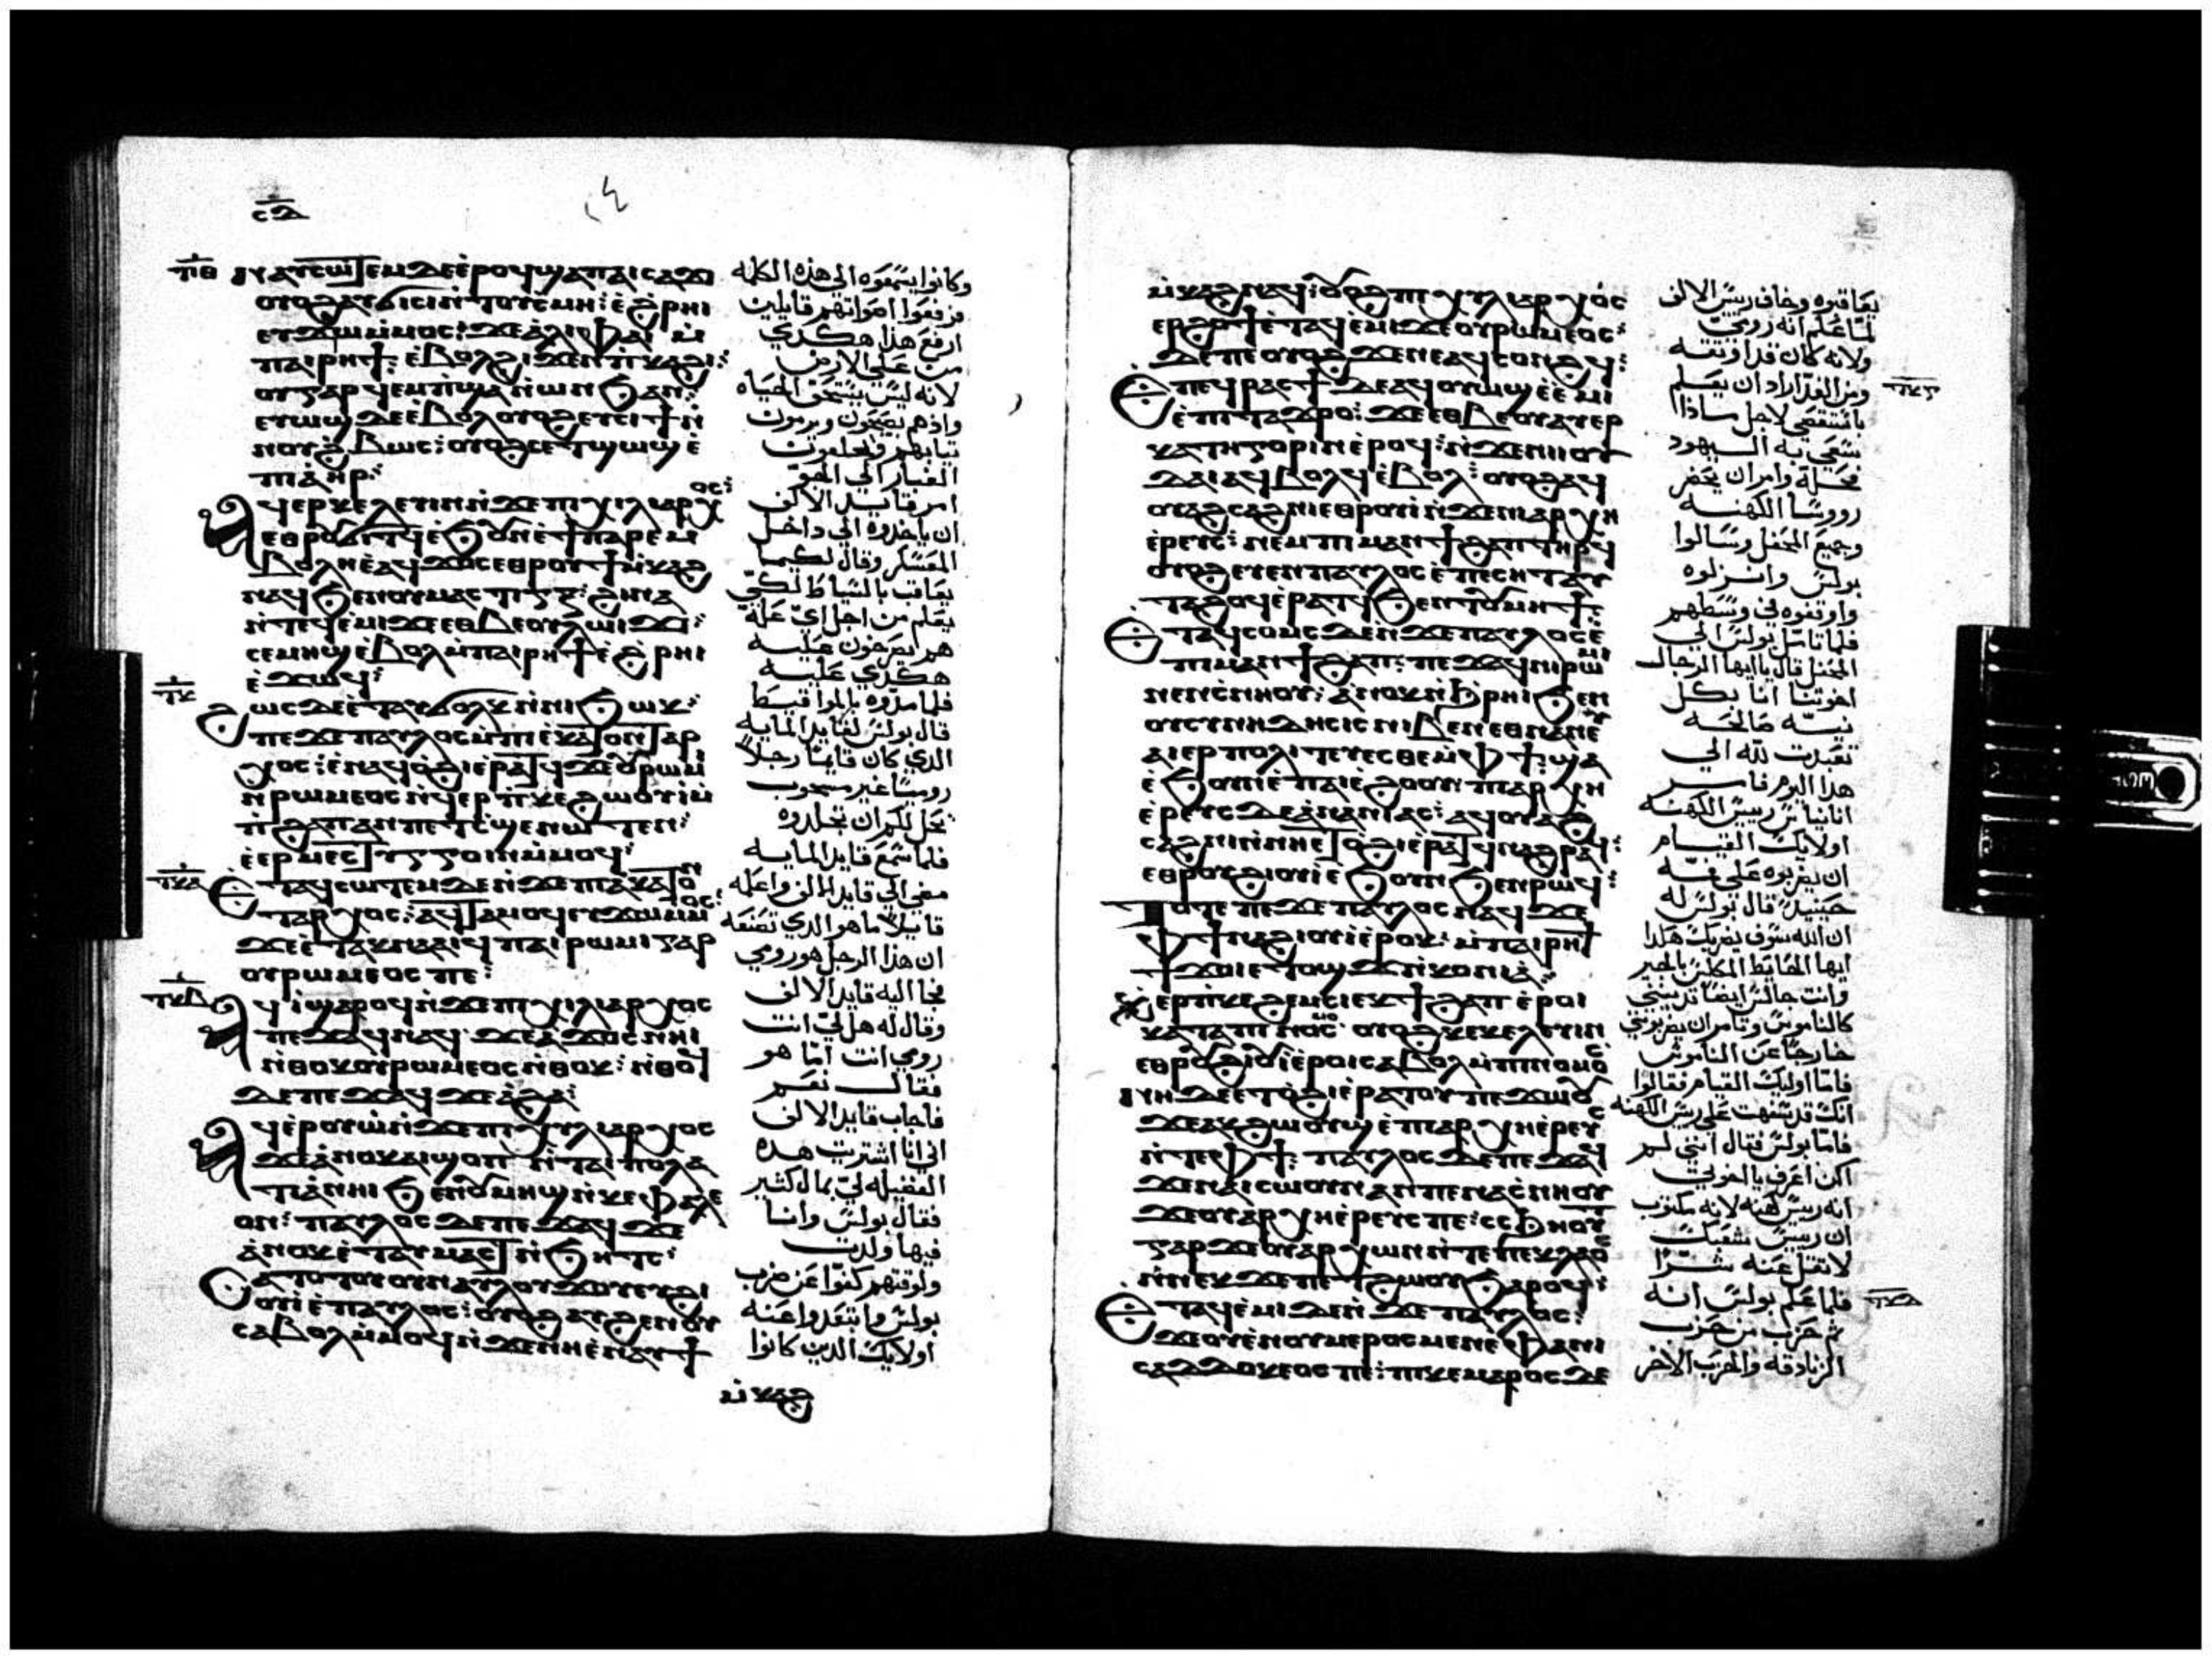 ⲥⲇ
ⲧⲓⲑ ⲛⲁⲩⲥⲱⲧⲉⲙ ⲇⲉ ⲉ̀ⲣⲟϥ ϣⲁ ⲡⲁⲓⲥⲁϫⲓ
ⲟⲩⲟϩ ⲁⲩϭⲓⲥⲓ ⲛ̀ⲧⲟⲩⲥⲙⲏ: ⲉ̀ϩⲣⲏⲓ
ⲉⲩϫⲱ ⲙ̀ⲙⲟⲥ: ϫⲉ ⲁ̀ⲗⲓ ⲫⲁⲓ ⲙ̀
ⲡⲁⲓⲣⲏϯ: ⲉ̀ⲃⲟⲗϩⲓϫⲉⲛ ⲡ̀ⲕⲁϩⲓ:
ⲟⲩ ⲅⲁⲣ ϥⲉⲙⲡ̀ϣⲁ ⲛ̀ⲱⲛϧ ⲁⲛ:
ⲉⲩⲱϣ ⲇⲉ ⲉ̀ⲃⲟⲗ ⲟⲩⲟϩ ⲉⲩⲥⲓϯ ⲛ̀
ⲛⲟⲩϩ̀ⲃⲱⲥ: ⲟⲩⲟϩ ⲥⲉⲧϣⲱϣ ⲉ̀
ⲡⲁ̀ⲏⲣ:
ⲁϥⲉⲣⲕⲉⲗⲉⲩⲓⲛ ⲛ̀ϫⲉ ⲡⲓⲭⲓⲗⲓⲁⲣⲭⲟⲥ:
ⲉⲑⲣⲟⲩϭⲓⲧϥ ⲉ̀ϧⲟⲩⲛ ⲉ̀ϯⲡⲁⲣⲉⲙ
ⲃⲟⲗⲏ ⲉ̀ⲁϥϫⲟⲥ ⲉⲑⲣⲟⲩϯⲙ̀ⲕⲁϩ
ⲛⲁϥ ϧⲉⲛ ϩⲁⲛⲙⲁⲥⲧⲓⲅⲝ: ϩⲓⲛⲁ
ⲛ̀ⲧⲉϥⲉⲙⲓ ϫⲉ ⲉⲑⲃⲉ ⲟⲩ ⲗⲱⲓϫⲓ:
ⲥⲉⲙⲏϣ ⲉ̀ⲃⲟⲗ ⲙ̀ⲡⲁⲓⲣⲏϯ ⲉ̀ϩⲣⲏⲓ
ⲉ̀ϫⲱϥ:
ⲧⲕ ϩⲱⲥ ⲇⲉ ⲉ̀ⲧⲁⲩϭⲟⲗⲕϥ ⲛ̀ⲛⲓϧⲱⲕ:
ⲡⲉϫⲉ ⲡⲁⲩⲗⲟⲥ ⲙ̀ⲡⲓⲉ̀ⲕⲁⲧⲟⲛⲧⲁⲣ
ⲭⲟⲥ: ⲉ̀ⲛⲁϥⲟ̀ϩⲓ ⲉ̀ⲣⲁⲧϥ ϫⲉ ⲟⲩⲣⲱⲙⲓ
ⲛ̀ⲣⲱⲙⲉⲟⲥ ⲛ̀ϥⲉⲣⲡ̀ⲕⲉϩⲱⲟⲩⲓ ⲙ̀
ⲡ̀ϩⲁⲡ ⲁⲛ ⲡⲉⲧⲥ̀ϣⲉ ⲛⲱⲧⲉⲛ:
ⲉ̀ⲉⲣⲙⲉⲥⲧⲓⲅⲅⲟⲓⲛ ⲙ̀ⲙⲟϥ:
ⲧⲕⲁ ⲉⲧⲁϥⲥⲱⲧⲉⲙ ⲇⲉ ⲛ̀ϫⲉ ⲡⲓⲉ̀ⲕⲁⲧⲟⲛ
ⲧⲁⲣⲭⲟⲥ: ⲁϥⲧⲁⲙⲟϥ ⲉϥϫⲱ ⲙ̀ⲙⲟⲥ:
ϫⲉ ⲉ̀ⲧⲁⲕⲛⲁⲁⲓϥ ⲡⲁⲓⲣⲱⲙⲓ ⲅⲁⲣ
ⲟⲩⲣⲱⲙⲉⲟⲥ ⲡⲉ:
ⲧⲕⲃ ⲁϥⲓ̀ ϣⲁⲣⲟϥ ⲛ̀ϫⲉ ⲡⲓⲭⲓⲗⲓⲁⲣⲭⲟⲥ
ⲡⲉϫⲁϥ ⲛⲁϥ: ϫⲉ ⲁ̀ϫⲟⲥ ⲛⲏⲓ
ⲛ̀ⲑⲟⲕ ⲟⲩⲣⲱⲙⲉⲟⲥ ⲛ̀ⲑⲟⲕ: ⲛ̀ⲑⲟϥ
ⲇⲉ ⲡⲉϫⲁϥ ϫⲉ ⲁ̀ϩⲁ:
ⲁϥⲉⲣⲟⲩⲱ̀ ⲛ̀ϫⲉ ⲡⲓⲭⲓⲗⲓⲁⲣⲭⲟⲥ
ϫⲉ ⲁ̀ⲛⲟⲕ ⲁⲓϣⲱⲡ ⲛ̀ⲧⲁⲓⲡⲟⲗⲓ
ⲧⲓⲁ̀ ⲛⲏⲓ ϧⲉⲛ ⲟⲩⲙⲏϣ ⲛ̀ⲕⲉⲫⲁⲗⲉ
ⲟⲛ: ⲡⲁⲩⲗⲟⲥ ⲇⲉ ⲡⲉϫⲁϥ ϫⲉ
ⲁ̀ⲛⲟⲕ ⲉ̀ⲧⲁⲩⲙⲁⲥⲧ ⲛ̀ϧⲏⲧⲥ:
ⲥⲁⲧⲟⲧⲟⲩ ⲟⲩⲛ ⲁⲩⲭⲁⲧⲟⲧⲟⲩ ⲉⲩϩⲓ
ⲟⲩⲓ ⲉ̀ⲡⲁⲩⲗⲟⲥ: ⲟⲩⲟϩ ⲁⲩϩⲉⲛⲟⲩ
ⲥⲁⲃⲟⲗ ⲙ̀ⲙⲟϥ ⲛ̀ϫⲉ ⲛⲏⲉ̀ⲛⲁⲩϯ
ⲙ̀ⲕⲁϩ
وكانوا يسمعوه الى هذه الكلمه
فرفعوا اصواتهم قايلين
ارفع هذا هكذي
من على الارض
لانه ليس يستحق الحياه
واذ هم يصيحون ويرمون
ثيابهم ويحلعون
الغبار الى الجو
امر قايد الالف
ان ياخذوه الى داخل
المعسكر وقال لكيما
يعاقب بالسياط لكي
يعلم من اجل اي عله
هم يصرخون عليه
هكذي عليه
فلما مدوه بالمواقيسط
قال بولس لقايد المايه
الذي كان قايما رجلا
روميا غير مسحوب
يحل لكم ان تجلدوه
فلما سمع قايد المايه
مضى الى قايد الالف واعلمه
قايلا ما هو الذي تصنعه
ان هذا الرجل هو رومي
فجا اليه قايد الالف
وقال له هل لي انت
رومي انت اما هو
فقال نعم
فاجاب قايد الالف
اني انا اشتريت هذه
الفضيله لي بمال كثير
فقال بولس وانا
فيها ولدت
ولوقتهم كفوا عن ضرب
بولس وابتعدوا عنه
اولايك الذين كانوا
ⲙ̀ⲕⲁϩ ⲛⲁϥ: ⲟⲩⲟϩ ⲡⲓⲭⲓⲗⲓⲁⲣⲭⲟⲥ
ⲉⲣϩⲟϯ ⲉ̀ⲧⲁϥⲉ̀ⲙⲓ ϫⲉ ⲟⲩⲣⲱⲙⲉⲟⲥ:
ϫⲉ ⲡⲉ ⲟⲩⲟϩ ϫⲉ ⲛⲉⲁϥⲥⲟⲛϩϥ:
ⲉ̀ⲡⲉϥⲣⲁⲥϯ ⲇⲉ ⲁϥⲟⲩⲱϣ ⲉ̀ⲉ̀ⲙⲓ
ⲉ̀ⲡⲓⲧⲁϫⲣⲟ: ϫⲉ ⲉⲑⲃⲉ ⲟⲩ ⲁⲩⲉⲣ
ⲕⲁⲧⲏⲅⲟⲣⲓⲛ ⲉ̀ⲣⲟϥ: ⲛ̀ϫⲉ ⲛⲓⲓⲟⲩ
ⲇⲁⲓ ⲁϥⲃⲟⲗϥ ⲉ̀ⲃⲟⲗ: ⲟⲩⲟϩ ⲁϥ
ⲟⲩⲁϩⲥⲁϩⲛⲓ ⲉⲑⲣⲟⲩⲓ̀ ⲛ̀ϫⲉ ⲛⲓⲁⲣⲭⲏ
ⲉ̀ⲣⲉⲩⲥ: ⲛⲉⲙ ⲡⲓⲙⲁⲛϯϩⲁⲡ ⲧⲏⲣϥ
ⲟⲩⲟϩ ⲉⲩⲉⲛ ⲡⲁⲩⲗⲟⲥ ⲉ̀ⲡⲉⲥⲏⲧ ⲁⲩ
ⲧⲁϩⲟϥ ⲉ̀ⲣⲁⲧϥ ϧⲉⲛ ⲧⲟⲩⲙⲏϯ:
ⲉⲧⲁϥⲥⲟⲙⲥ ⲇⲉ ⲛ̀ϫⲉ ⲡⲁⲩⲗⲟⲥ ⲉ̀
ⲡⲓⲙⲁⲛϯϩⲁⲡ: ⲡⲉϫⲁϥ ⲛⲓⲣⲱⲙⲓ
ⲛⲉⲛⲥ̀ⲛⲏⲟⲩ: ⲁ̀ⲛⲟⲕ ⲛ̀ϩ̀ⲣⲏⲓ ϧⲉⲛ
ⲟⲩⲥⲩⲛⲏⲇⲏⲥⲓⲥ ⲛⲓⲃⲉⲛ ⲉⲑⲛⲁⲛⲉⲥ
ⲁⲓⲉⲣⲡⲟⲗⲓⲧⲉⲩⲉⲥⲑⲉ ⲙ̀ⲫϯ: ϣⲁ
ⲉ̀ϧⲟⲩⲛ ⲉ̀ⲡⲁⲓⲉ̀ϩⲟⲟⲩ ⲡⲓⲁⲣⲭⲏ
ⲉ̀ⲣⲉⲩⲥ ⲇⲉ ⲁ̀ⲛⲁⲛⲓⲁⲥ: ⲁϥⲟⲩⲁϩ
ⲥⲁϩⲛⲓ ⲛ̀ⲛⲏⲉⲧⲟϩⲓ ⲉ̀ⲣⲁⲧϥ ⲛⲁϩⲣⲁϥ:
ⲉⲑⲣⲟⲩϩⲓⲟⲩⲓ ⲉ̀ϧⲟⲩⲛ ϧⲉⲛ ⲣⲱϥ:
ⲧⲟⲧⲉ ⲡⲉϫⲉ ⲡⲁⲩⲗⲟⲥ ⲛⲁϥ ϫⲉ
ⲫϯ ⲛⲁϩⲓⲟⲩⲓ ⲉ̀ⲣⲟⲕ: ⲙ̀ⲡⲁⲓⲣⲏϯ
ϯϫⲟⲓ ⲉⲧⲟϣϫ ⲛ̀ⲕⲟⲛⲓⲁ̀:
ⲭ̀ϩⲉⲙⲥⲓ ⲉⲕϯϩⲁⲡ ⲉ̀ⲣⲟⲓ
ⲕⲁⲧⲁ ⲡⲓⲛⲟⲙⲟⲥ: ⲟⲩⲟϩ ⲕⲉⲕⲉⲗⲉⲩⲓⲛ
ⲉⲑⲣⲟⲩϩⲓⲟⲩⲓ̀ ⲉ̀ⲣⲟⲓ ⲥⲁⲃⲟⲗ ⲙ̀ⲡⲓⲛⲟⲙⲟⲥ
ⲛⲏ ⲇⲉ ⲉⲧⲟ̀ϩⲓ ⲉ̀ⲣⲁⲧⲟⲩ ⲡⲉϫⲱⲟⲩ
ϫⲉ ⲁⲕϩⲱⲟⲩϣ ⲉ̀ⲡⲓⲁⲣⲭⲏⲉ̀ⲣⲉⲩⲥ
ⲛ̀ⲧⲉ ⲫϯ: ⲡⲁⲩⲗⲟⲥ ⲇⲉ ⲡⲉϫⲁϥ
ϫⲉ ⲛⲁⲓⲥⲱⲟⲩⲛ ⲁⲛ ⲡⲉ ⲛⲁⲥ̀ⲛⲏⲟⲩ
ϫⲉ ⲟⲩⲁⲣⲭⲏⲉ̀ⲣⲉⲩⲥ ⲡⲉ: ⲥⲥ̀ϧⲏⲟⲩⲧ
ⲅⲁⲣ ϫⲉ ⲟⲩⲁⲣⲭⲱⲛ ⲛ̀ⲧⲉ ⲡⲉⲕⲗⲁⲟⲥ
ⲛ̀ⲛⲉⲕϫⲉ ⲡⲉⲧϩⲱⲟⲩ ϧⲁⲣⲟϥ:
ⲉⲧⲁϥⲉ̀ⲙⲓ ⲇⲉ ⲛ̀ϫⲉ ⲡⲁⲩⲗⲟⲥ:
ϫⲉ ⲟⲩⲉ̀ⲛ ⲟⲩⲙⲉⲣⲟⲥ ⲙⲉⲛ ⲉ̀ⲫⲁ ⲛⲓ
ⲥⲁⲇⲇⲟⲩⲕⲉⲟⲥ ⲡⲉ: ⲡⲓⲕⲉⲙⲉⲣⲟⲥ ⲇⲉ
يعاقبوه وخاف رييس الالف
لما علم انه رومي
ولانه كان قد اوثقه
ومن الغد اراد ان يعلم
باستقصي لاجل ماذا
سعي به اليهود
فحله وامر ان يحضر
رووسا الكهنه
وجميع المحفل وسالوا
بولس وانزلوه
واوقفوه في وسطهم
فلما تامل بولس الى
المحفل قال يا ايها الرجال
اخوتنا انا بكل
نيه صالحه
تعبدت لله الى
هذا اليوم فامر
انانياس رييس الكهنه
اولايك القيام
ان يضربوه على فمه
حينيذ قال بولس له
ان الله سوف يضربك هكذا
ايها الحايط المكلس بالجير
وانت جالس ايضا تدينني
كالناموس وتامر ان يضربوني
خارجا عن الناموس
فاما اوليك القيام فقالوا
انك قد سفهت على رييس الكهنه
فاما بولس فقال انني لم
اكن اعرف يا اخوتي
انه رييس كهنه لانه مكتوب
ان رييس شعبك
لا تقل عنه شرا
فلما علم بولس انه
ثم حزب من حزب
الزنادقه والحزب الاخر